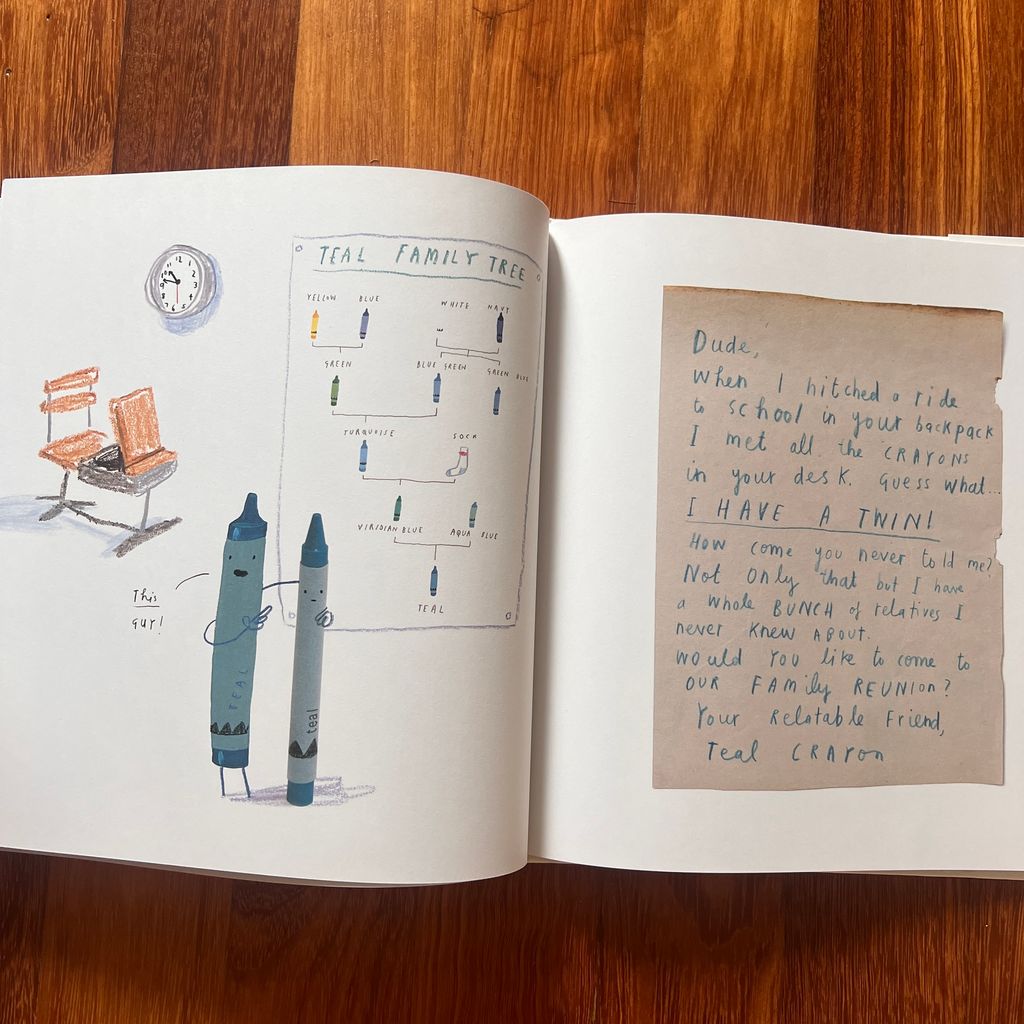 TEAL FAMILY TREE
YELLOW BLUE WHITE NAVY
GREEN BLUE GREEN GREEN BLUE
TURQUOISE SOCK
VIRIDIAN BLUE AQUA BLUE
TEAL
This
guy!
TEAL
teal
12
1
2
3
4
5
6
7
8
9
10
11
Dude,
When I hitched a ride
to school in your backpack
I met all the CRAYONS
in your desk. Guess what...
I HAVE A TWIN!
How come you never told me?
Not only that but I have
a whole BUNCH of relatives I
never knew ABOUT.
Would you like to come to
OUR FAMILY REUNION?
Your Relatable Friend,
Teal CRAYON